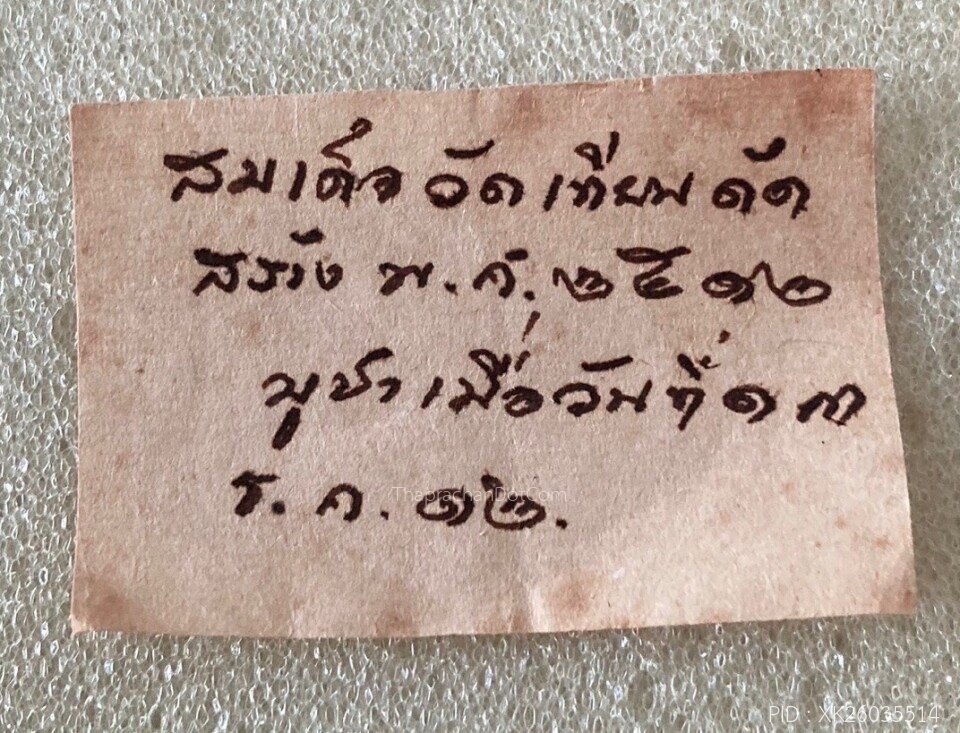 สมเด็จ วัด เทียนดัด
สร้าง พ.ศ. ๒๕๑๒
บูชา เมื่อวันที่ ๑๓
ธ.ค. ๑๒.
ThaprachanDotCom
PID : XK26035514